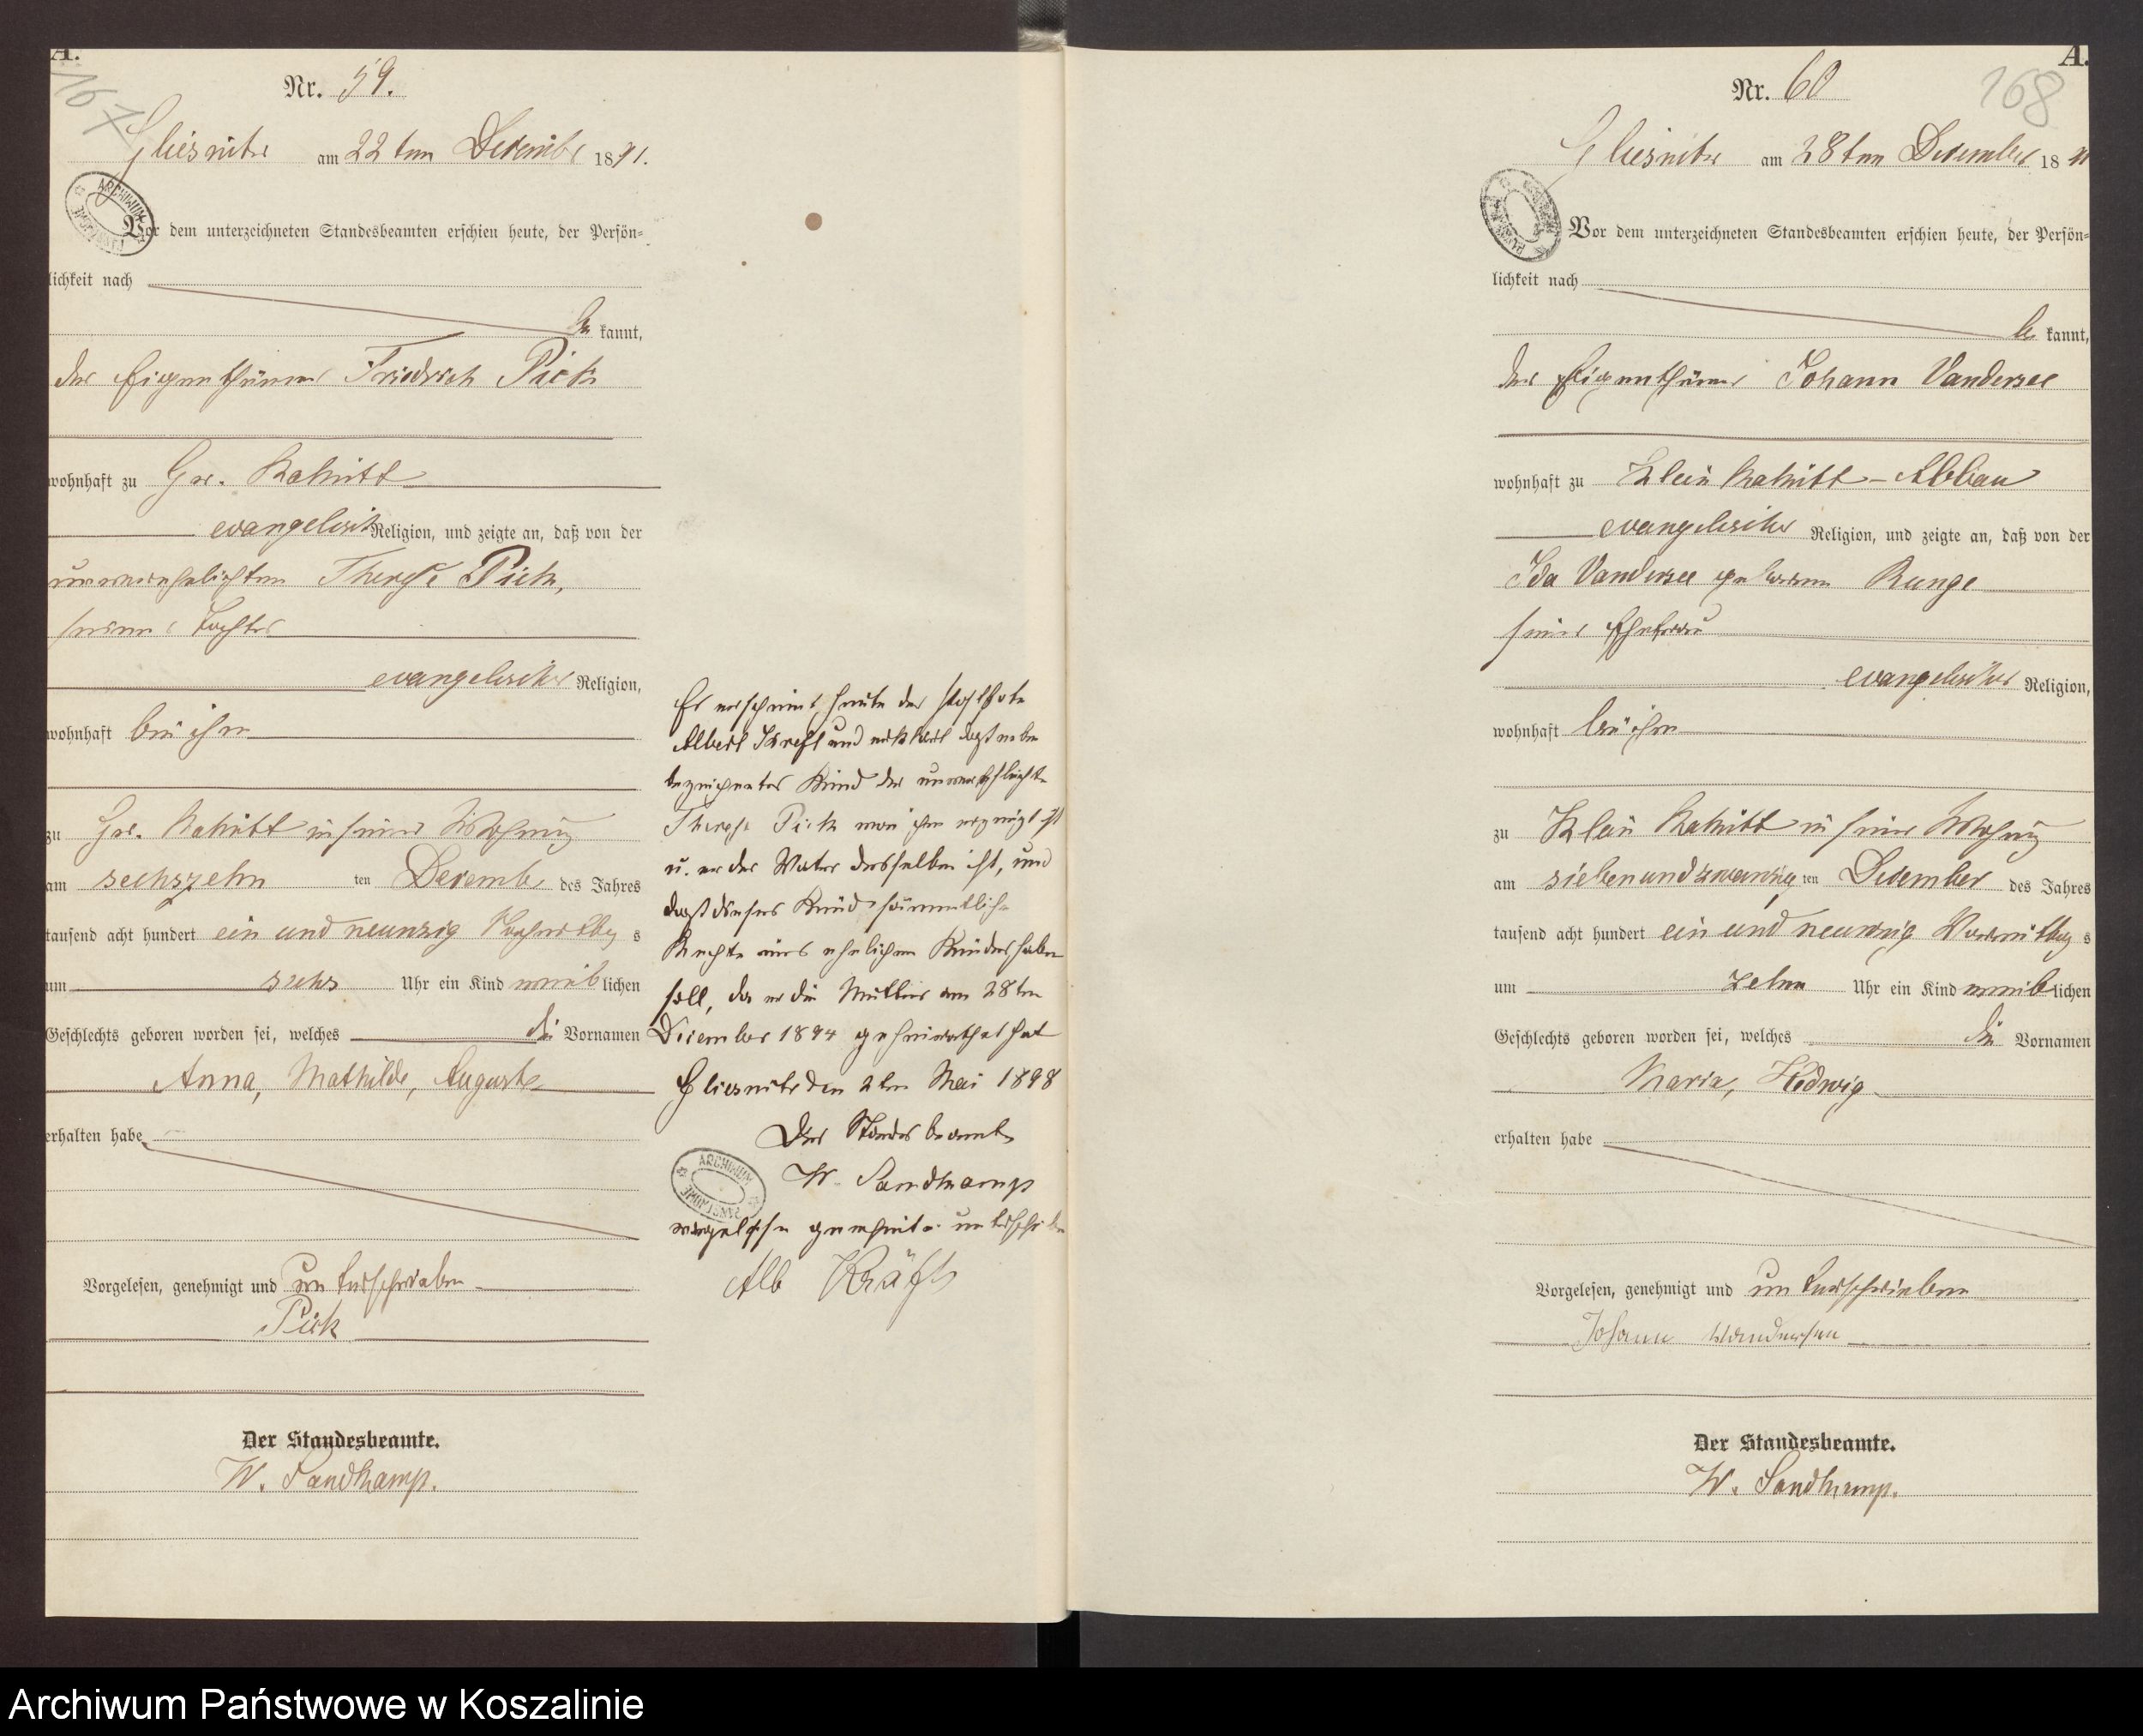 A.
167
Nr. 59.
Gliesnitz am 22ten Dezember 1891.
Vor dem unterzeichneten Standesbeamten erschien heute, der Persön-
lichkeit nach
be kannt,
der Eigenthümer Friedrich Pick
wohnhaft zu Gr. Rakitt
evangelisch Religion, und zeigte an, daß von der
unverehelichten Therese Pick,
seiner Tochter
evangelischer Religion,
wohnhaft bei ihm
zu Gr. Rakitt in seiner Wohnung
am sechszehn ten Dezember des Jahres
tausend acht hundert ein und neunzig Nachmittags
um sechs Uhr ein Kind weib lichen
Geschlechts geboren worden sei, welches die Vornamen
Anna, Mathilde, Auguste
erhalten habe
Vorgelesen, genehmigt und unterschrieben
Pick
Der Standesbeamte.
W. Sandkamp.
Es erscheint heute der
Albert und erklärt daß neben
bezeichnetes Kind der unverehelichte
Therese Pick von ihm erzeugt ist
u. er der Vater desselben ist, und
daß dieses Kind sämmtliche
Rechte eines ehelichen Kindes haben
soll, da er die Mutter am 28ten
Dezember 1894 geheirathet hat
Gliesnitz den 2ten Mai 1898
Der Standesbeamte
W. Sandkamp
vorgelesen genehmigt u. unterschrieben
Alb Kräft
ARCHIWUM PAŃSTWOWE
A.
168
Nr. 60
Gliesnitz am 28ten Dezember 1891
Vor dem unterzeichneten Standesbeamten erschien heute, der Persön-
lichkeit nach
be kannt,
der Eigenthümer Johann Vandersee
wohnhaft zu Klein Rakitt - Abbau
evangelischer Religion, und zeigte an, daß von der
Ida Vandersee geborenen Runge
seiner Ehefrau
evangelischer Religion,
wohnhaft bei ihm
zu Klein Rakitt in seiner Wohnung
am siebenundzwanzig ten Dezember des Jahres
tausend acht hundert ein und neunzig Vormittags
um zehn Uhr ein Kind weib lichen
Geschlechts geboren worden sei, welches die Vornamen
Maria, Hedwig
erhalten habe
Vorgelesen, genehmigt und unterschrieben
Johann Wandersee
Der Standesbeamte.
W. Sandkamp.
Archiwum Państwowe w Koszalinie